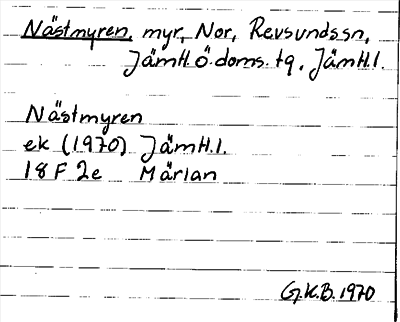 Nästmyren, myr, Nor, Revsundssn,
Jämtl. ö. doms. tg, Jämtl.l.
Nästmyren
ek (1970) Jämtl.l.
18 F 2e Märlan
G.K.B. 1970